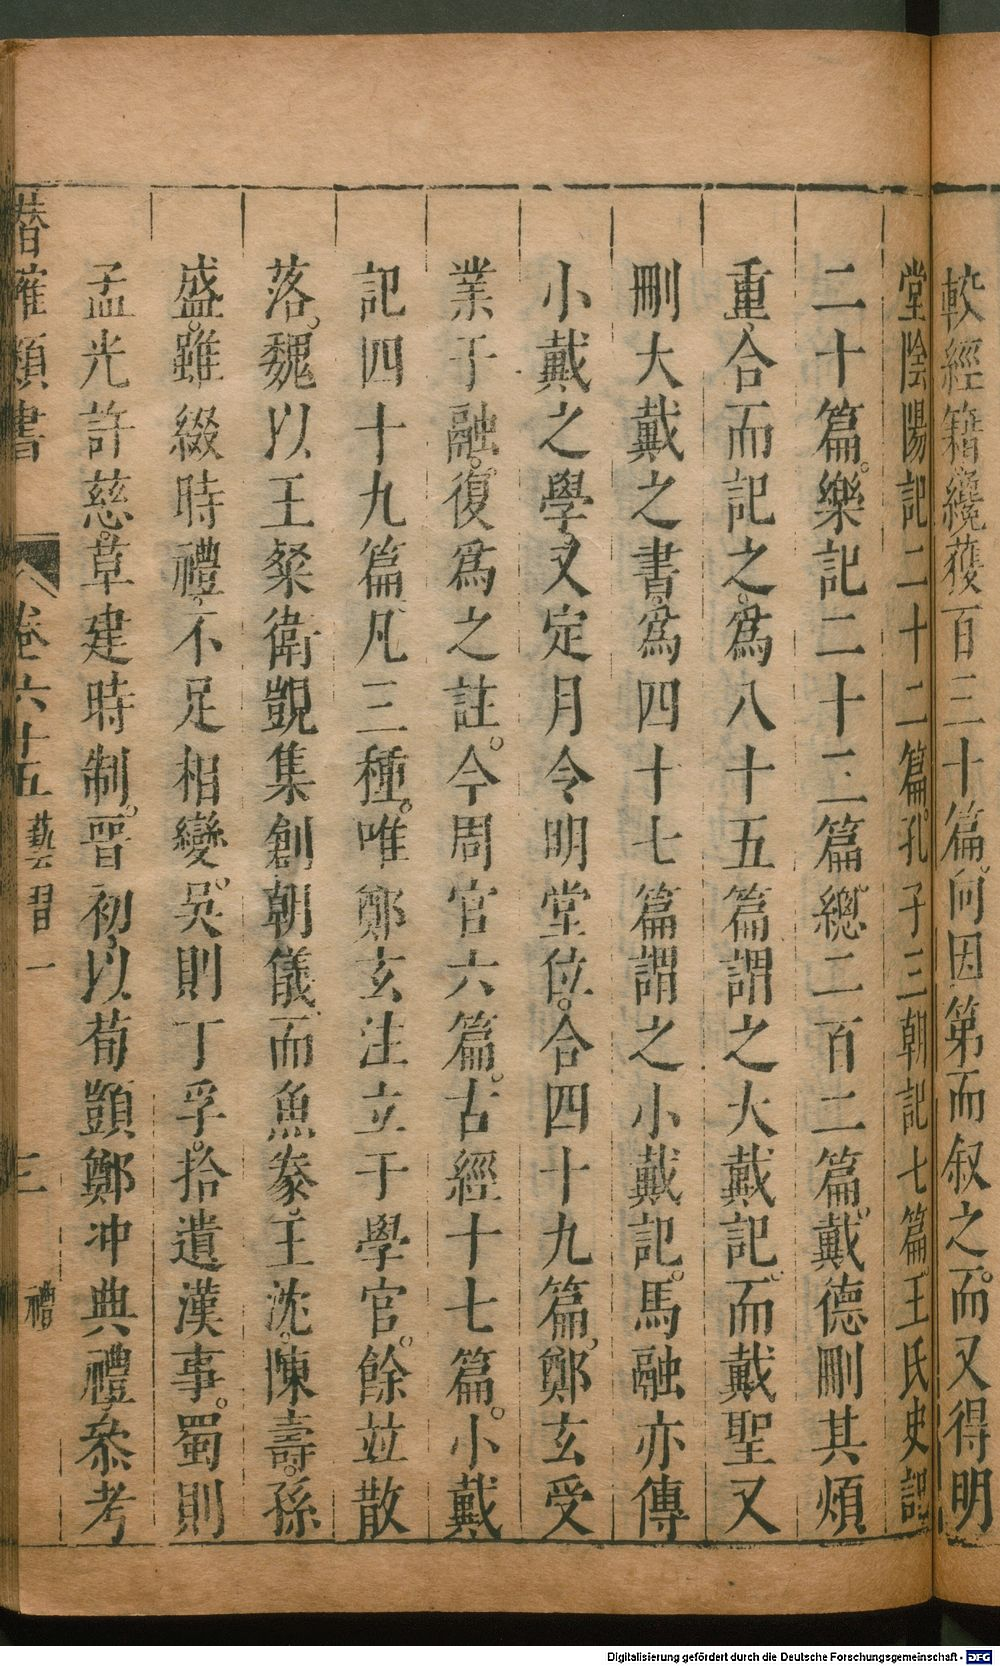 較經籍纔獲百三十篇。向因第而叙之。而又得明
堂陰陽記二十二篇。孔子三朝記七篇。王氏史記
二十篇。樂記二十二篇。總二百二篇。戴德刪其煩
重。合而記之。爲八十五篇。謂之大戴記。而戴聖又
刪大戴之書。爲四十七篇。謂之小戴記。馬融亦傳
小戴之學。又定月令明堂位。合四十九篇。鄭玄受
業于融。復爲之註。今周官六篇。古經十七篇。小戴
記四十九篇。凡三種。唯鄭玄注立于學官。餘並散
落。魏以王粲衛覬集創朝儀。而魚豢。王沈。陳壽。孫
盛。雖綴時禮。不足相變。吳則丁孚。拾遺漢事。蜀則
孟光許慈。草建時制。晉初以荀顗鄭冲典禮。叅考
潛確類書 卷六十五 藝習一 三 禮
Digitalisierung gefördert durch die Deutsche Forschungsgemeinschaft - DFG